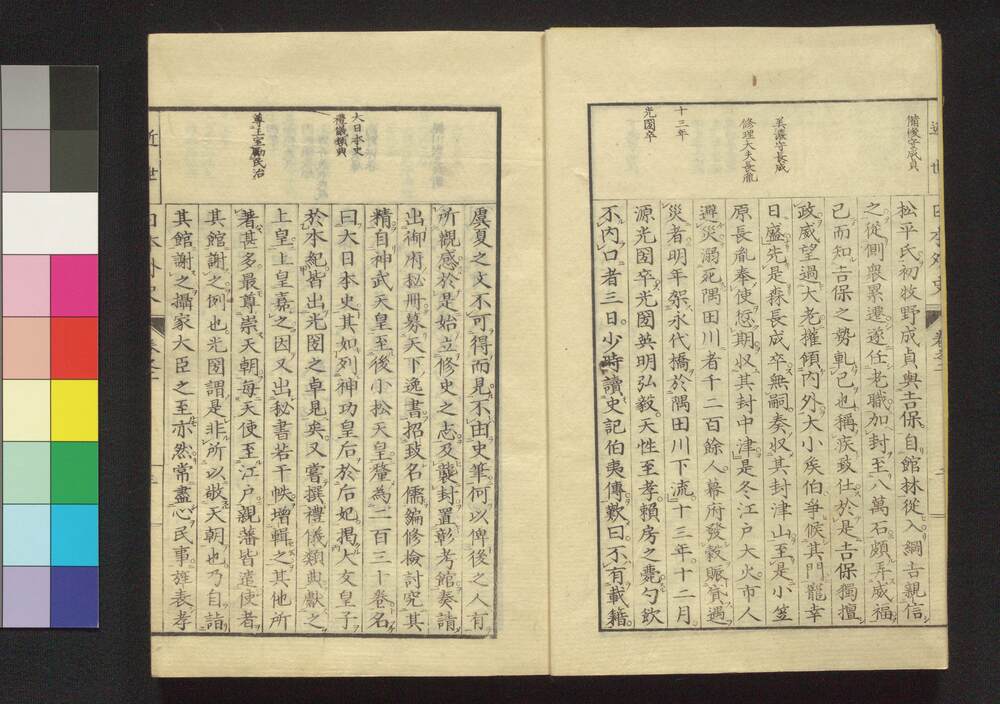 備後守成貞
美濃守長成
修理大夫長胤
十三年
光圀卒
松平氏初牧野成貞與吉保自館林從入綱吉親信
之從側衆累遷遂任老職加封至八萬石頗弄威福
已而知吉保之勢軋己也稱疾致仕於是吉保獨擅
政威望過大老權傾內外大小矦伯爭候其門寵幸
日盛先是森長成卒無嗣奏收其封津山至是小笠
原長胤奉使愆期收其封中津是冬江戶大火市人
避災溺死隅田川者千二百餘人幕府發穀賑貸遇
災者明年架永代橋於隅田川下流十三年十二月
源光圀卒光圀英明弘毅天性至孝賴房之薨勺飲
不內口者三日少時讀史記伯夷傳歎曰不有載籍
大日本史
禮儀類典
尊王室勵民治
虞夏之文不可得而見不由史筆何以俾後之人有
所觀感於是始立修史之志及襲封置彰考館奏請
出御府秘冊募天下逸書招致名儒編修撿討究其
精自神武天皇至後小松天皇釐為二百三十卷名
曰大日本史其如列神功皇后於后妃揭大友皇子
於本紀皆出光圀之卓見矣又嘗撰禮儀類典獻之
上皇上皇嘉之因又出秘書若干帙增輯之其他所
著甚多最尊崇天朝每天使至江戶親藩皆遣使者
其館謝之例也光圀謂是非所以敬天朝也乃自詣
其館謝之攝家大臣之至亦然常盡心民事旌表孝
近世
日本外史